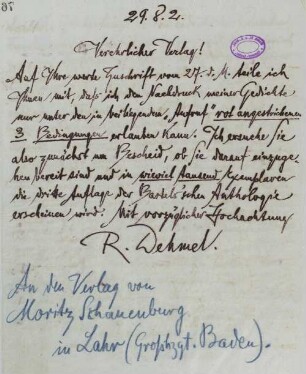 29.8.2.
Verehrlicher Verlag!
Auf Ihre werte Zuschrift vom 27. d. M. teile ich
Ihnen mit, daß ich den Nachdruck meiner Gedichte
nur unter den im beiliegenden „Aufruf" rot angestrichenen
3 Bedingungen erlauben kann. Ich ersuche Sie
also zunächst um Bescheid, ob Sie darauf einzuge-
hen bereit sind und in wieviel tausend Exemplaren
die dritte Auflage der Bartels'schen Anthologie
erscheinen wird. Mit vorzüglicher Hochachtung
R. Dehmel.
An den Verlag von
Moritz Schauenburg
in Lahr (Großhzgt. Baden).